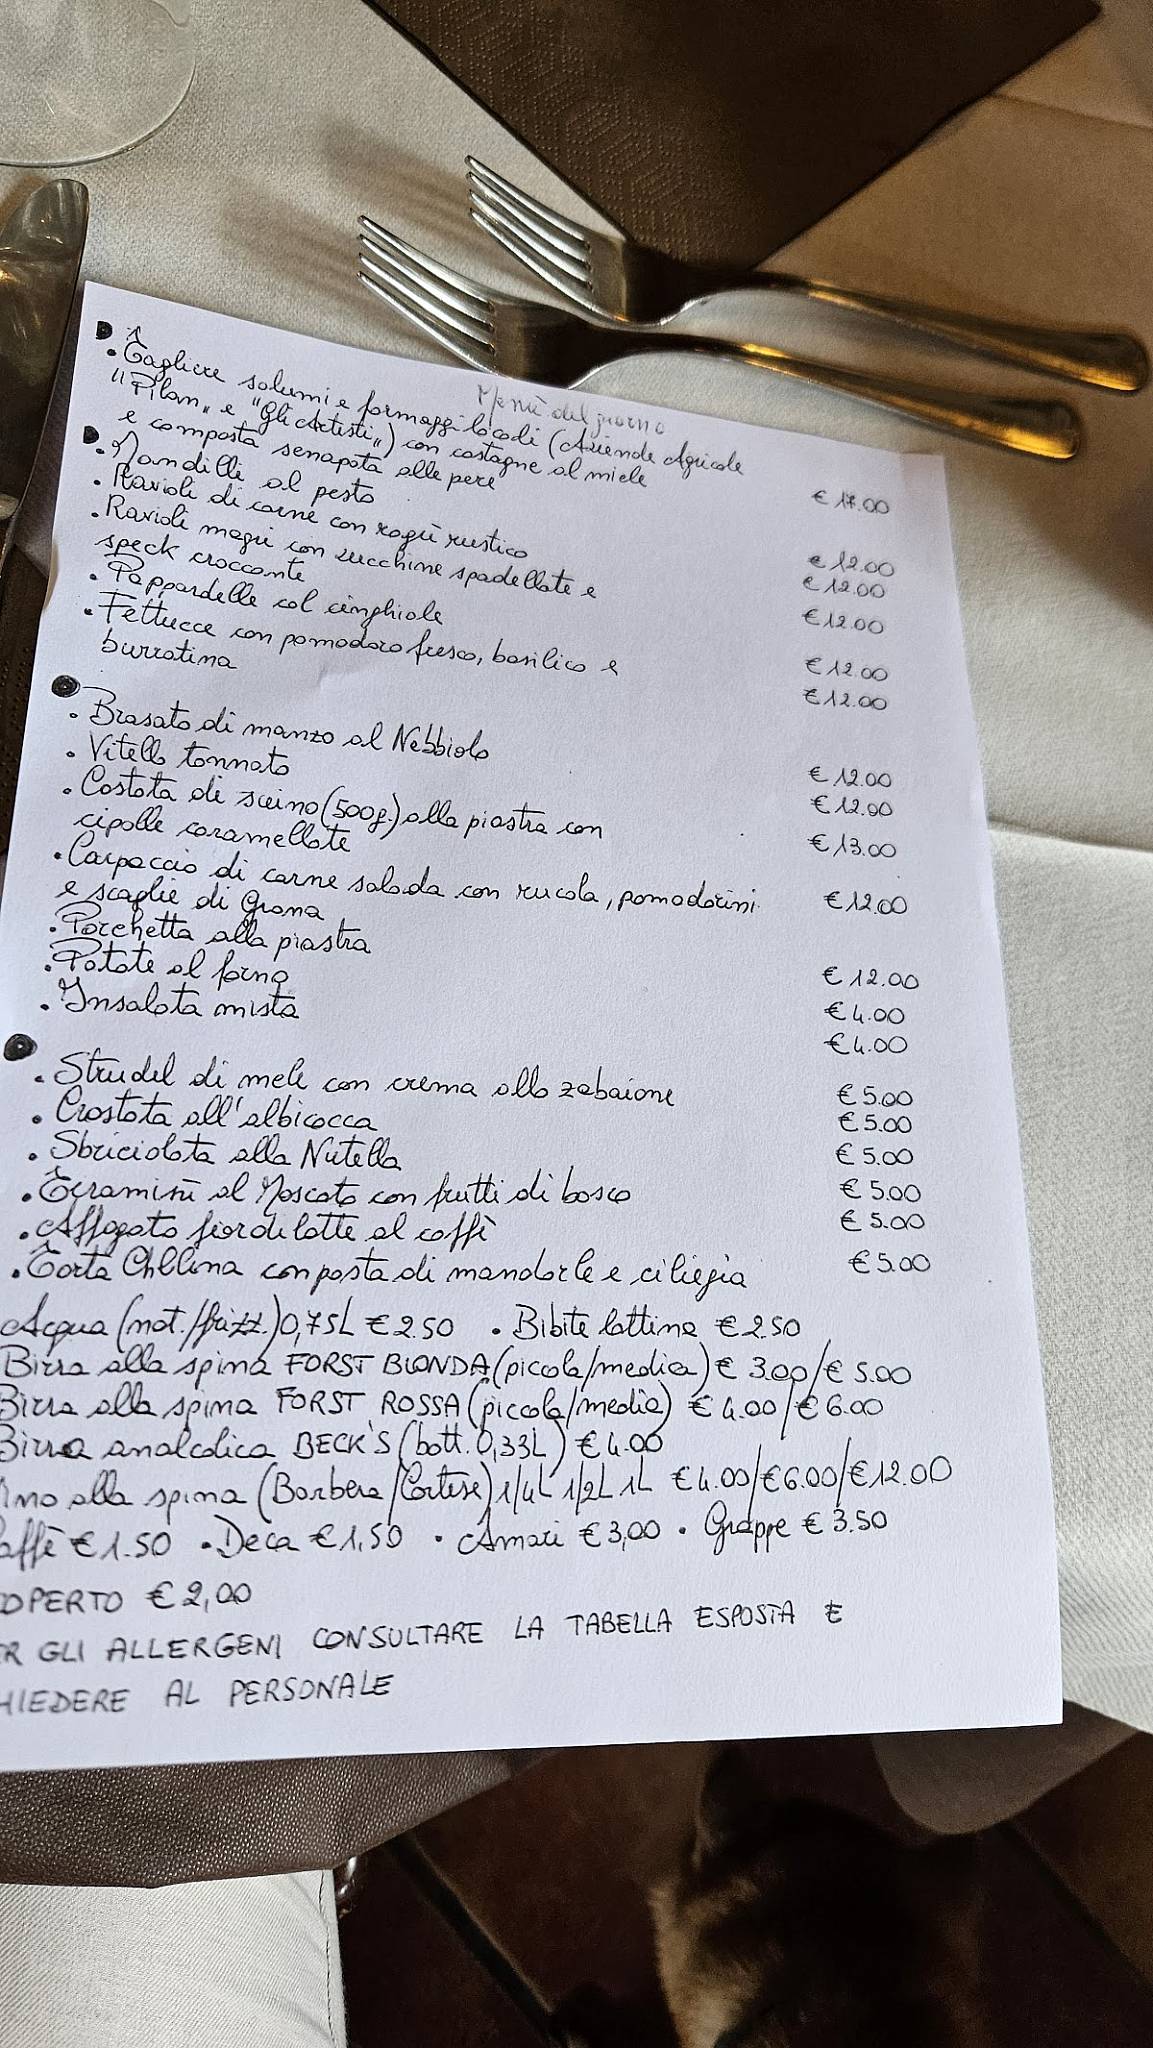 Menù del giorno
• Tagliere salumi e formaggi locali (Aziende Agricole
"Pilan" e "Gli Artisti") con castagne al miele
e composta senapata alle pere € 17.00
• Mandilli al pesto € 12.00
• Ravioli di carne con ragù rustico € 12.00
• Ravioli magri con zucchine spadellate e
speck croccante € 12.00
• Pappardelle col cinghiale € 12.00
• Fettucce con pomodoro fresco, basilico e
burratina € 12.00
• Brasato di manzo al Nebbiolo € 12.00
• Vitello tonnato € 12.00
• Costata di suino (500g.) alla piastra con
cipolle caramellate € 13.00
• Carpaccio di carne salada con rucola, pomodorini
e scaglie di Grana € 12.00
• Porchetta alla piastra € 12.00
• Patate al forno € 4.00
• Insalata mista € 4.00
• Strudel di mele con crema allo zabaione € 5.00
• Crostata all'albicocca € 5.00
• Sbriciolata alla Nutella € 5.00
• Tiramisù al Moscato con frutti di bosco € 5.00
• Affogato fiordilatte al caffè € 5.00
• Torta con pasta di mandorle e ciliegia € 5.00
Acqua (nat./frizz.) 0,75L € 2.50 • Bibite lattina € 2.50
Birra alla spina FORST BIONDA (piccola/media) € 3.00/€ 5.00
Birra alla spina FORST ROSSA (piccola/media) € 4.00/€ 6.00
Birra analcolica BECK'S (bott. 0,33L) € 4.00
ino alla spina (Barbera/Cortese) 1/4L 1/2L 1L € 4.00/€ 6.00/€ 12.00
affè € 1.50 • Deca € 1,50 • Amari € 3,00 • Grappe € 3.50
OPERTO € 2,00
R GLI ALLERGENI CONSULTARE LA TABELLA ESPOSTA E
HIEDERE AL PERSONALE